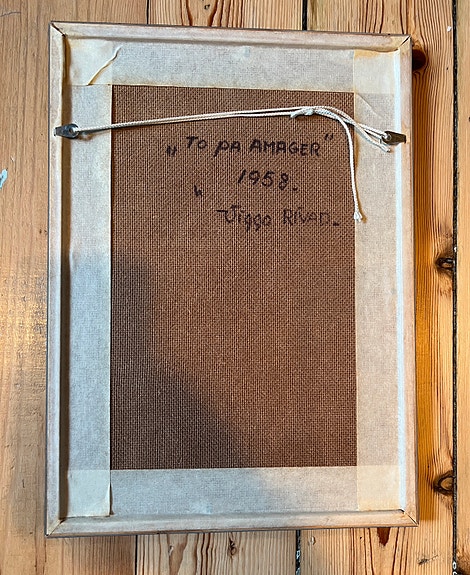 „To pa AMAGER"
1958.
Viggo RIVAD.